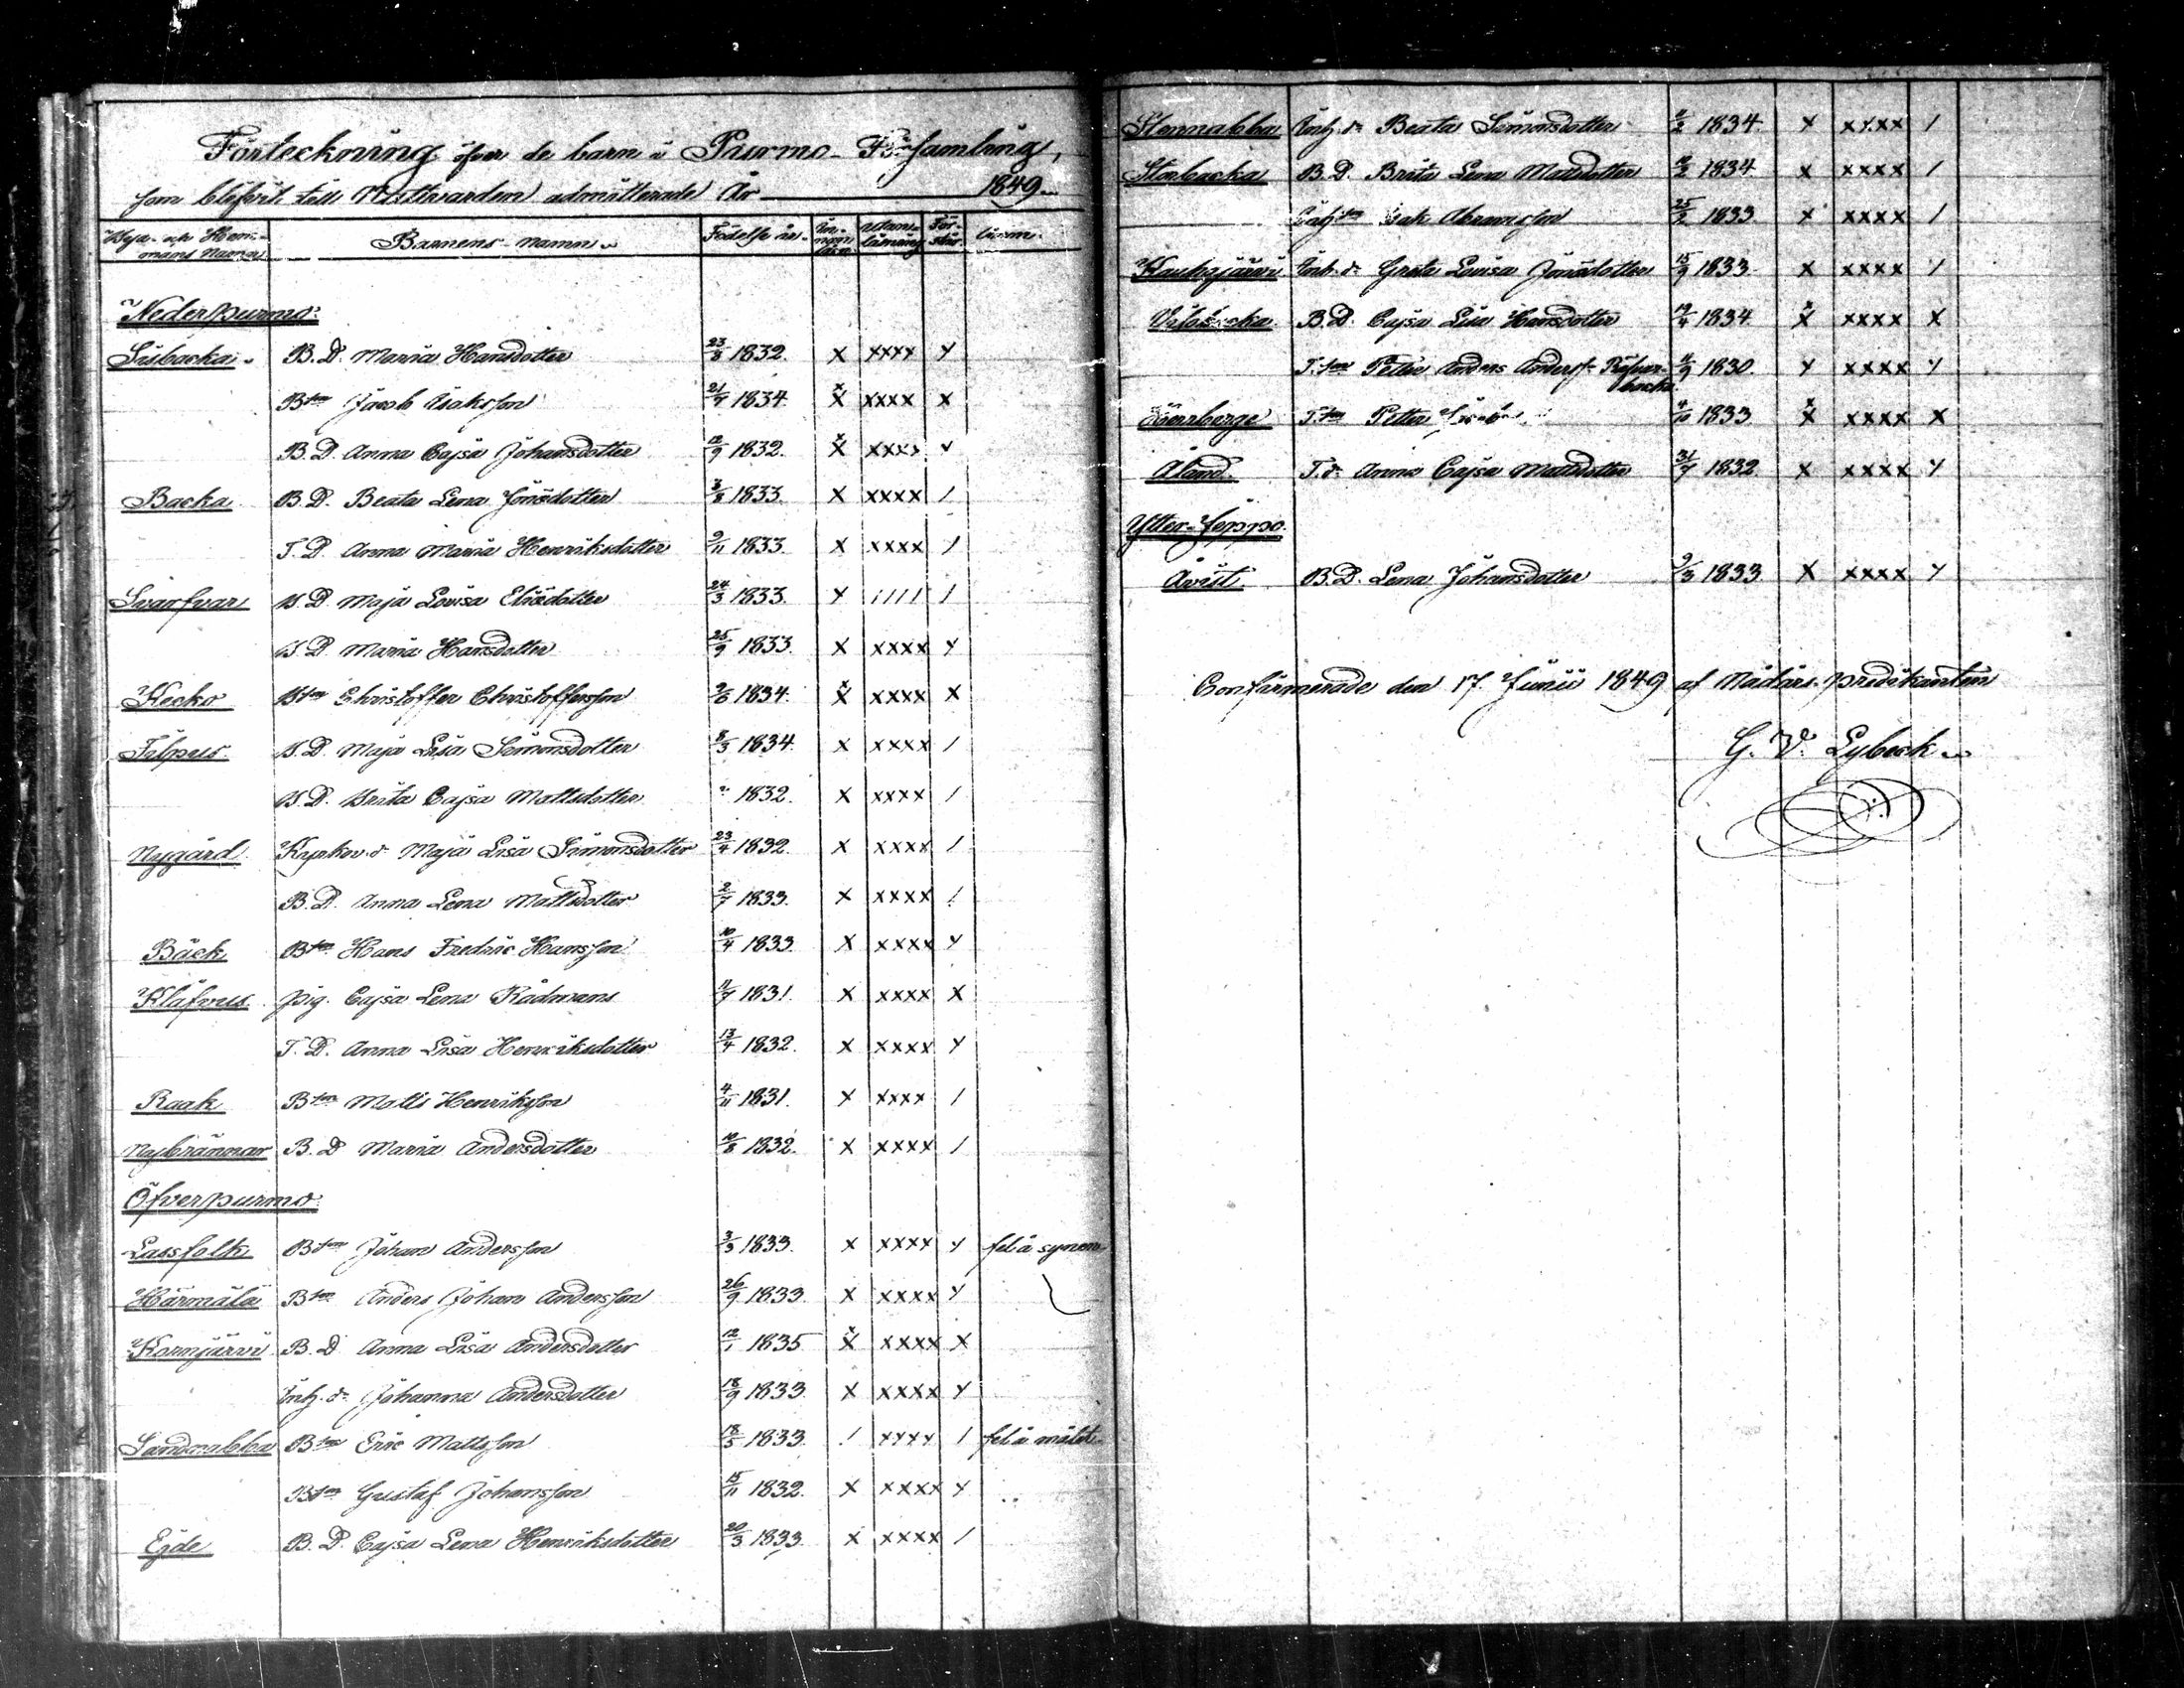 Förteckning öfver de barn i Purmo Församling,
som blifvit till Nattvarden admitterade År 1849.
Bya- och Hemmans Namn Barnens namn Födelse år Innan läsn. Utan-läsning För-står. Anm.
Nederpurmo.
Sisbacka B. D. Maria Hansdotter 23/8 1832. x xxxx y
Bson Jacob Isaksson 21/7 1834. x xxxx x
B. D. Anna Cajsa Johansdotter 12/9 1832. x xxxx y
Backa B. D. Beata Lena Jönsdotter 3/8 1833. x xxxx /
T. D. Anna Maria Henriksdotter 9/11 1833. x xxxx /
Svarfvar B. D. Maja Lovisa Eliædotter 24/3 1833. y //// /
B. D. Maria Hansdotter 25/9 1833. x xxxx y
Kecko Bson Christoffer Christoffersson 1834. x xxxx x
B. D. Maja Lisa Simonsdotter 8/3 1834. x xxxx /
B. D. Brita Cajsa Mattsdotter 1832. x xxxx /
Nygård Kyrkov. d. Maja Lisa Simonsdotter 23/4 1832. x xxxx /
B. D. Anna Lena Mattsdotter 2/7 1833. x xxxx /
Bäck Bson Hans Fredric Hansson 10/4 1833. x xxxx y
Klåfvus Pig. Cajsa Lena Rådmans 11/7 1831. x xxxx x
T. D. Anna Lisa Henriksdotter 13/4 1832. x xxxx y
Raak Bson Matts Henriksson 4/11 1831. x xxxx /
Nybrännar B. D. Maria Andersdotter 10/8 1832. x xxxx /
Öfverpurmo
Lassfolk Bson Johan Andersson 3/3 1833. x xxxx y fel å synen
Härmälä Bson Anders Johan Andersson 26/9 1833. x xxxx y
Kornjärvi B. D. Anna Lisa Andersdotter 12/1 1835 x xxxx x
Inh. dr Johanna Andersdotter 18/9 1833. x xxxx y
Sandnabba Bson Eric Mattsson 18/5 1833. / yyyy / fel å målet
Bson Gustaf Johansson 15/11 1832. x xxxx y
Ejde B. D. Cajsa Lena Henriksdotter 20/3 1833. x xxxx /
Stennabba Inh. dr Beata Simonsdotter 1834. x xxxx /
Storbacka B. D. Brita Lena Mattsdotter 1834. x xxxx /
Inh. son Isak Abramsson 25/2 1833 x xxxx /
Kauhajärvi Inh. dr Greta Lovisa Jönsdotter 15/9 1833. x xxxx y
B. D. Cajsa Lisa Hansdotter 19/4 1834. x xxxx x
T. son Petter Anders Anderss. Räfvarbacka 1830. y xxxx y
T. son Petter 4/10 1833. x xxxx x
Åland. T. dr Anna Cajsa Mattsdotter 31/7 1832. x xxxx y
Ytter Jeppo.
Åvist. B. D. Lena Johansdotter 9/3 1833 x xxxx y
Confirmerade den 17. Junii 1849 af Nådårs-predikanten
G. V. Lybeck